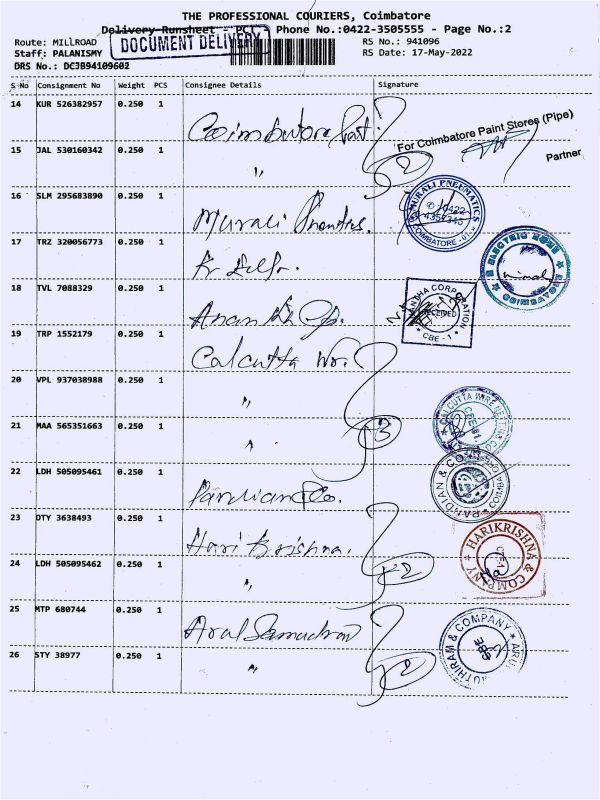 THE PROFESSIONAL COURIERS, Coimbatore
Delivery Runsheet - PCT - Phone No.:0422-3505555 - Page No.:2
DOCUMENT DELIVERY
Route: MILLROAD RS No.: 941096
Staff: PALANISMY RS Date: 17-May-2022
DRS No.: DCJB94109602
S No Consignment No Weight PCS Consignee Details Signature
14 KUR 526382957 0.250 1 Coimbatore Paint
For Coimbatore Paint Stores (Pipe)
Partner
15 JAL 530160342 0.250 1 " 2
16 SLM 295683890 0.250 1 Murali
MURALI PNEUMATICS
COIMBATORE
17 TRZ 320056773 0.250 1
ELECTRIC HOME
18 TVL 7088329 0.250 1
CORPORATION
RECEIVED
CBE - 1
19 TRP 1552179 0.250 1 Calcutta
20 VPL 937038988 0.250 1 "
21 MAA 565351663 0.250 1 " 3
CALCUTTA WIRE NETTING CO
22 LDH 505095461 0.250 1 Pandian & Co.
PANDIAN & CO
23 DTY 3638493 0.250 1 Hari Krishna.
HARIKRISHNA & COMPANY
24 LDH 505095462 0.250 1 " 2
25 MTP 680744 0.250 1
& COMPANY
CBE
26 STY 38977 0.250 1 " 2